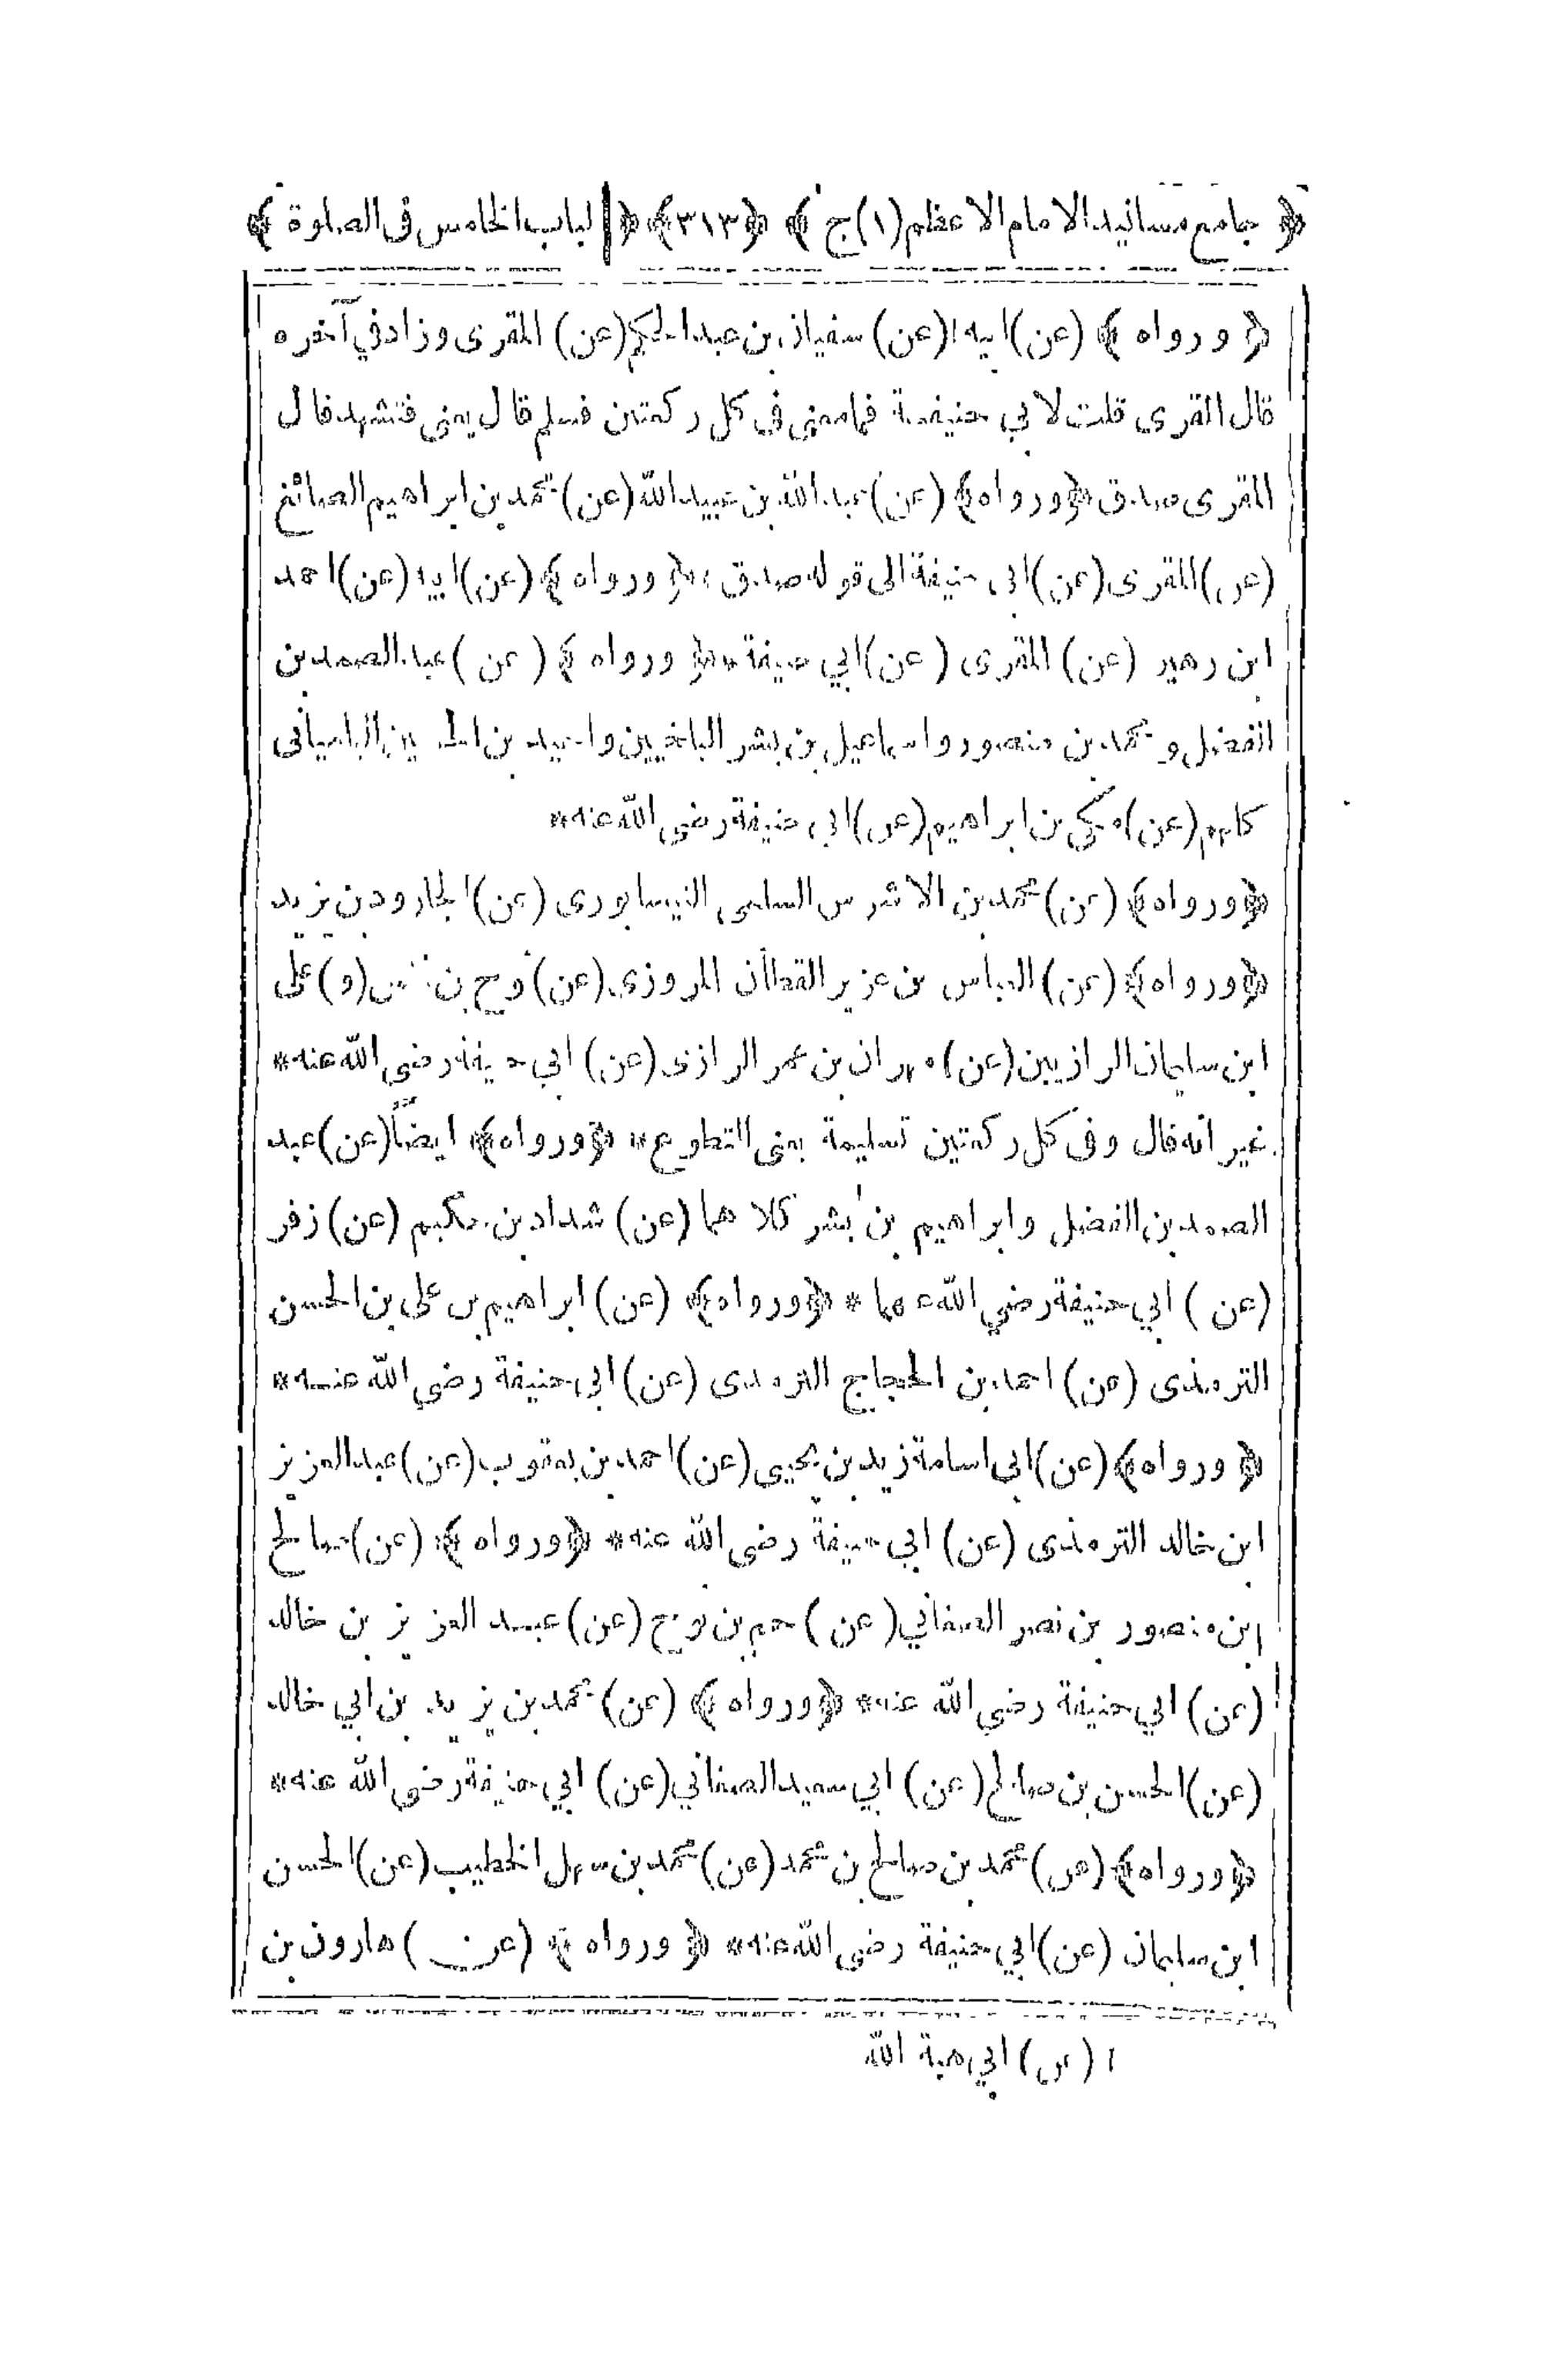 ﴿ جامع مسانيد الامام الاعظم (١)ج ﴾ ﴿٣١٣﴾ ﴿الباب الخامس فى الصلوة ﴾
﴿ ورواه ﴾ (عن) ابيه١ (عن) سفيان بن عبد الحكيم (عن) المقرى وزاد في آخره
قال المقرى قلت لابي حنيفة فما معنى فى كل ركعتين فسلم قال يعنى فتشهد فال
المقرى صدق ﴿ورواه﴾ (عن) عبد الله بن عبيد الله (عن) محمد بن ابراهيم الصائغ
(عن) المقرى (عن) ابى حنيفة الى قوله صدق * ﴿ ورواه ﴾ (عن) ابيه (عن) احمد
ابن زهير (عن) المقرى (عن) ابي حنيفة * ﴿ ورواه ﴾ (عن) عبد الصمد بن
الفضل و محمد بن منصور واسماعيل بن بشر البلخيين و بن
كلهم (عن) مكى بن ابراهيم (عن) ابى حنيفة رضى الله عنه *
﴿ورواه﴾ (عن) محمد بن الاشرس السلمى النيسابورى (عن) الجارود بن يزيد
﴿ورواه﴾ (عن) العباس بن عزير القطان المروزى (عن) نوح بن (و) على
ابن سليمان الرازيين (عن) مهران بن عمر الرازى (عن) ابي حنيفة رضى الله عنه *
غير انه قال وفى كل ركعتين تسليمة يعنى التطوع * ﴿ورواه﴾ ايضاً (عن) عبد
الصمد بن الفضل وابراهيم بن بشر كلاهما (عن) شداد بن حكيم (عن) زفر
(عن) ابي حنيفة رضي الله عنهما * ﴿ورواه﴾ (عن) ابراهيم بن على بن الحسن
الترمذى (عن) احمد بن الحجاج الترمذى (عن) ابى حنيفة رضي الله عنه *
﴿ ورواه﴾ (عن) ابى اسامة زيد بن يحيى (عن) احمد بن يعقوب (عن) عبد العزيز
ابن خالد الترمذى (عن) ابي حنيفة رضى الله عنه * ﴿ورواه ﴾ (عن) صالح
ابن منصور بن نصر الصغاني (عن) حم بن نوح (عن) عبد العزيز بن خالد
(عن) ابي حنيفة رضي الله عنه * ﴿ورواه ﴾ (عن) محمد بن يزيد بن ابي خالد
(عن) الحسن بن صالح (عن) ابي سعيد الصغاني (عن) ابي حنيفة رضى الله عنه *
﴿ورواه﴾ (عن) محمد بن صالح بن محمد (عن) محمد بن سهل الخطيب (عن) الحسن
ابن سليمان (عن) ابي حنيفة رضى الله عنه * ﴿ ورواه ﴾ (عن) هارون بن
١ (عن) ابي هبة الله